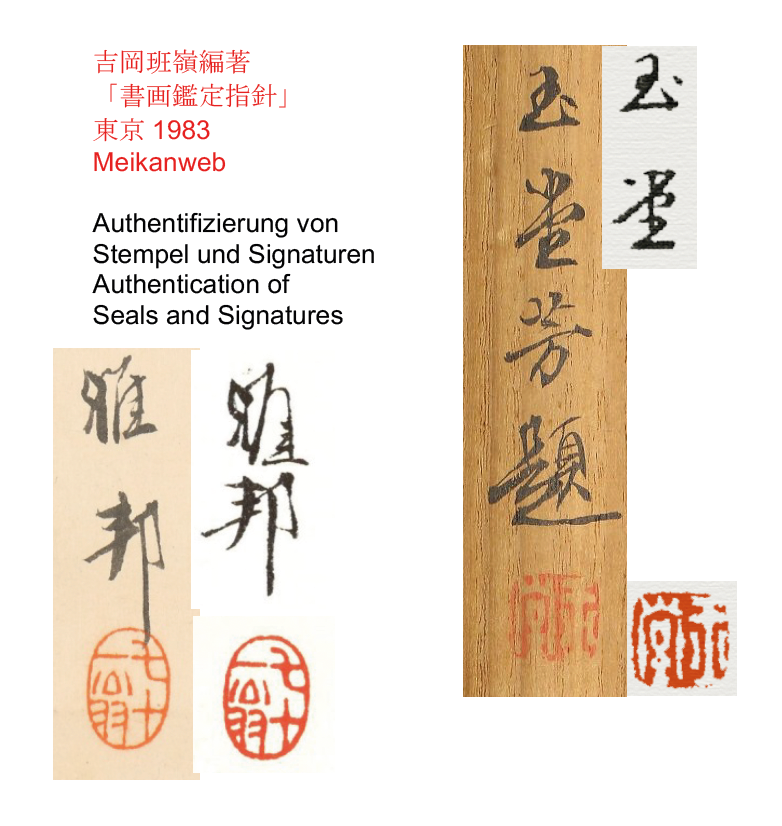 吉岡班嶺編著
「書画鑑定指針」
東京 1983
Meikanweb
Authentifizierung von
Stempel und Signaturen
Authentication of
Seals and Signatures
雅邦
雅邦
玉堂芳題
玉堂